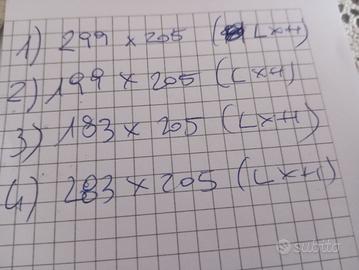 1) 299 x 205 (LxH)
2) 199 x 205 (LxH)
3) 183 x 205 (LxH)
4) 283 x 205 (LxH)
subito